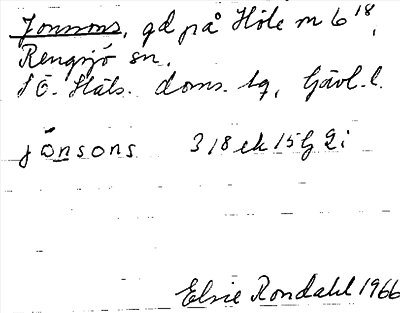 Jonsons, gd på Höle m 6¹⁸,
Rengsjö sn.
SÖ. Häls. doms. tg, Gävl. l.
jönsons 3 18 ek 15 G 2i
Elsie Rondahl 1966